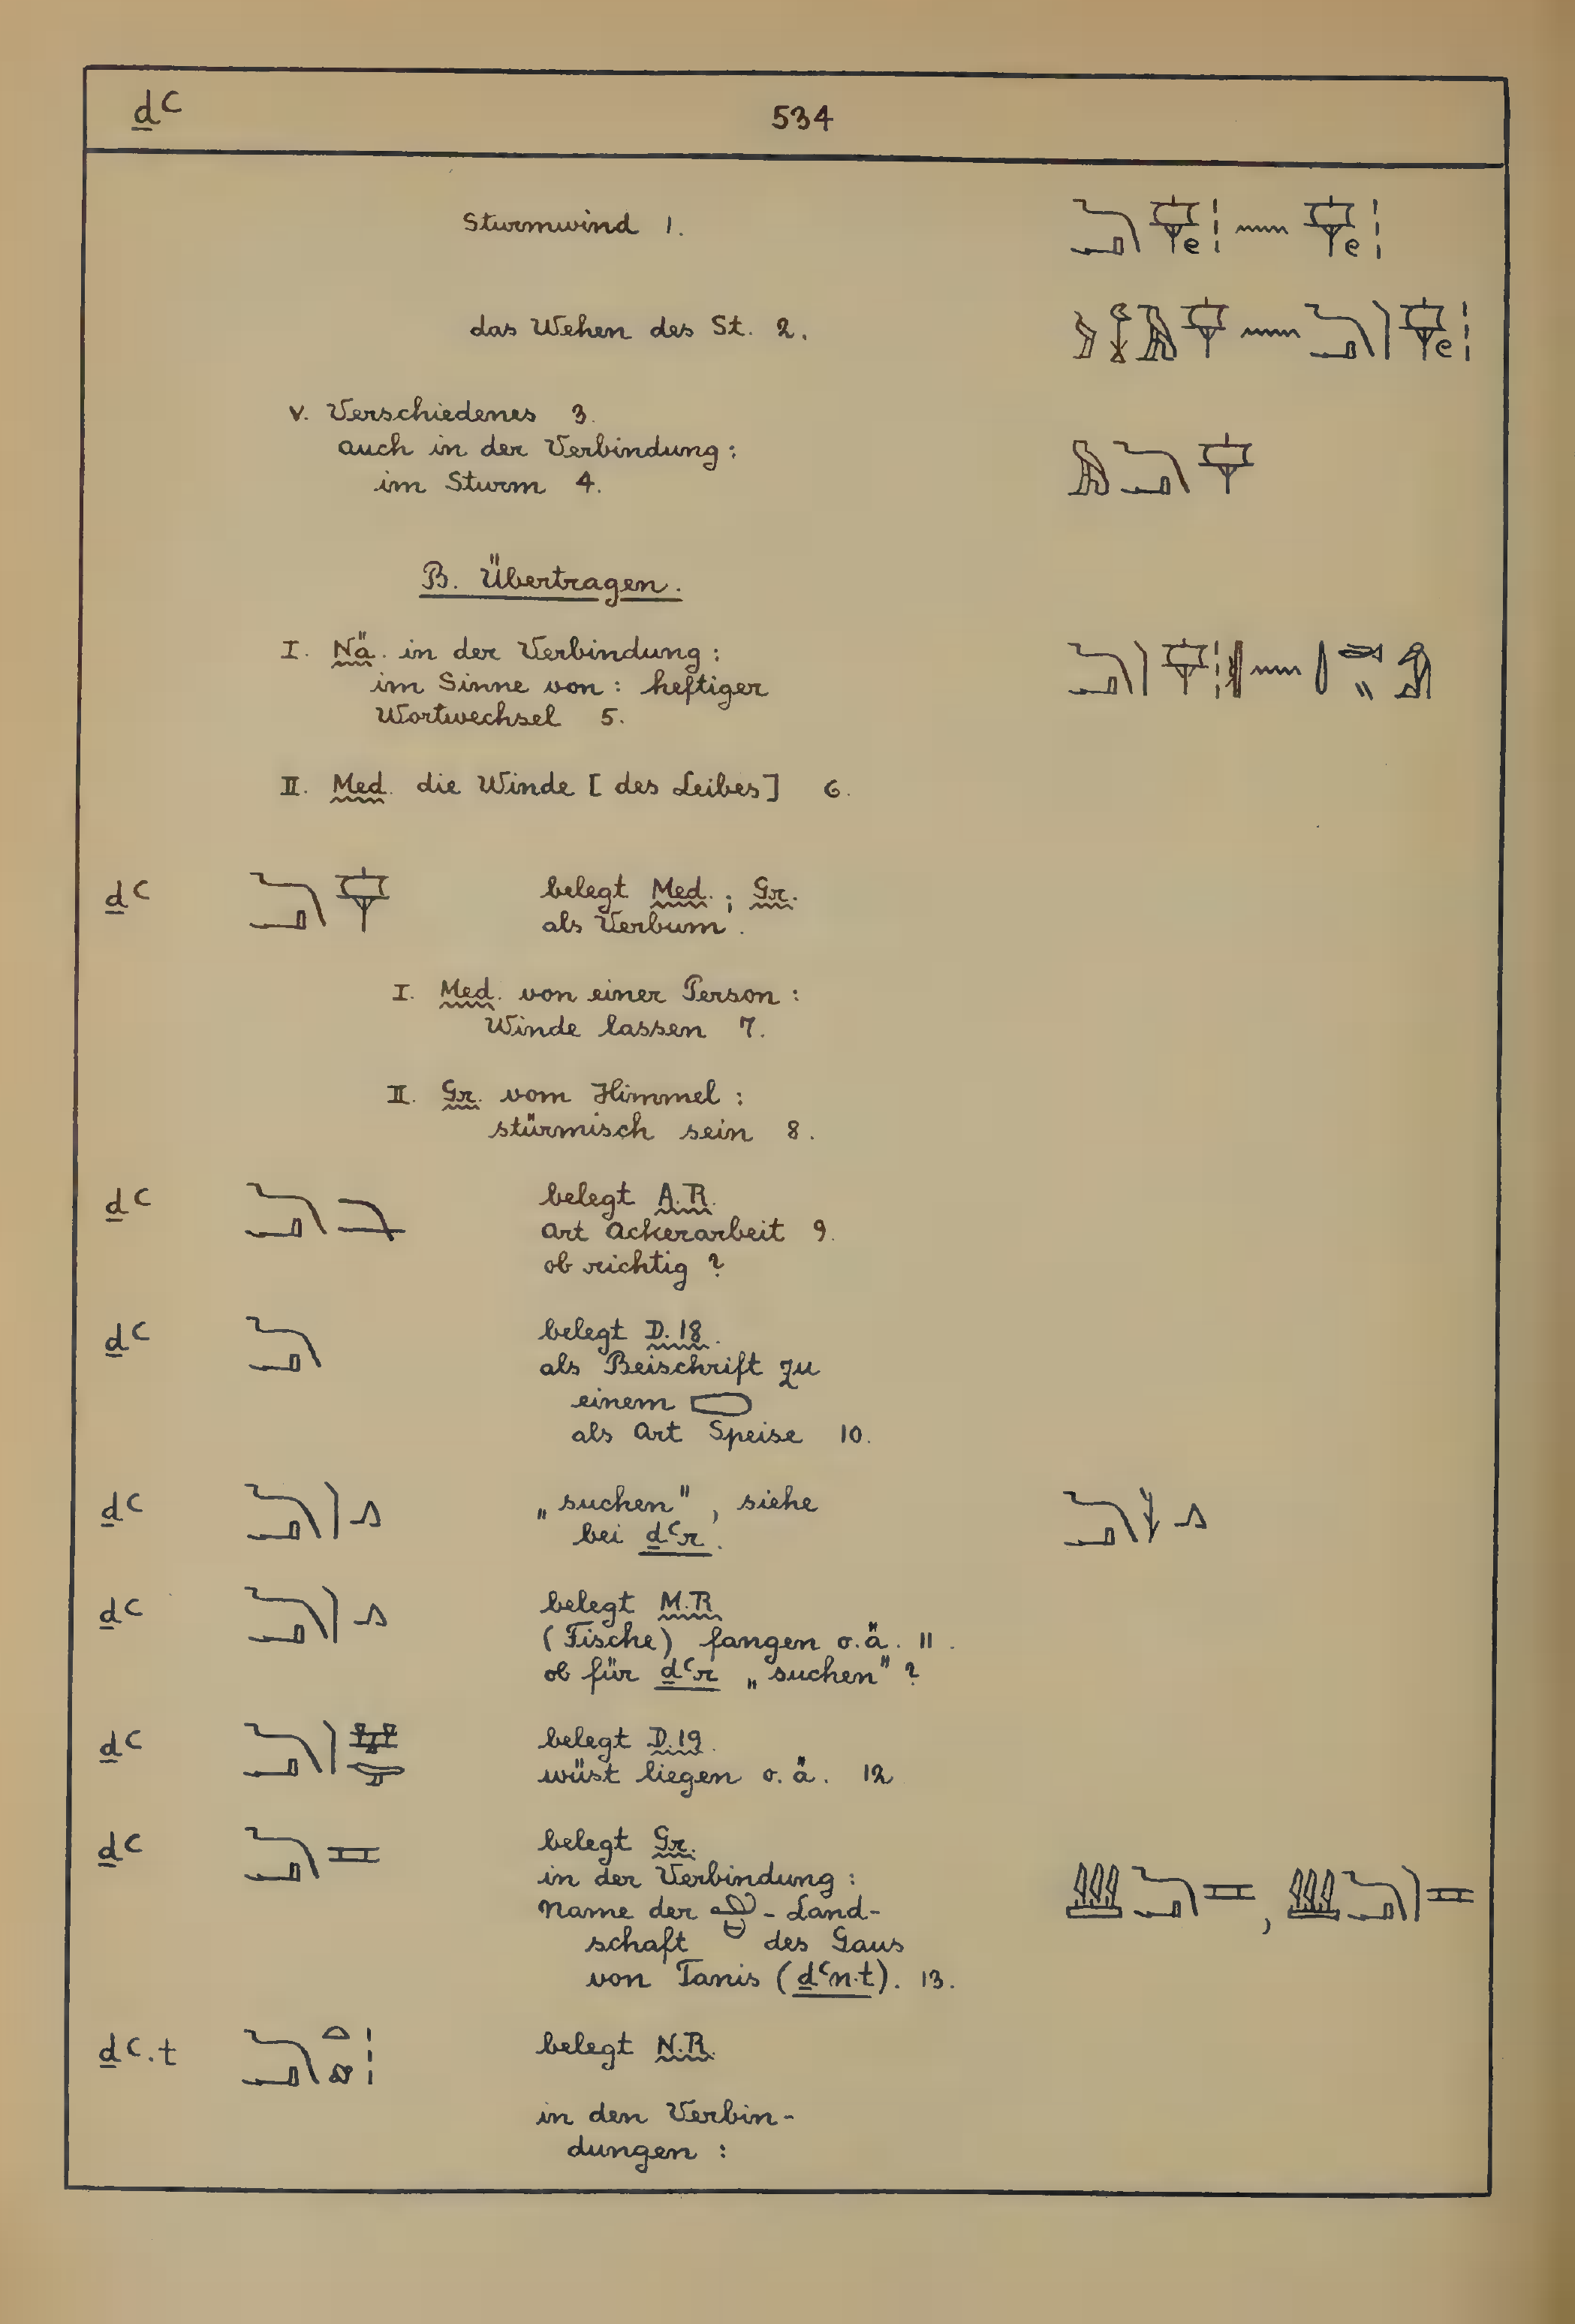 ḏꜥ 534
Sturmwind 1.
das Wehen des St. 2.
V. Verschiedenes 3.
auch in der Verbindung:
im Sturm 4.
B. Übertragen.
I. Nä. in der Verbindung:
im Sinne von: heftiger
Wortwechsel 5.
II. Med. die Winde [des Leibes] 6.
ḏꜥ belegt Med.; Gr.
als Verbum.
I. Med. von einer Person:
Winde lassen 7.
II. Gr. vom Himmel:
stürmisch sein 8.
ḏꜥ belegt A.R.
Art Ackerarbeit 9.
ob richtig?
ḏꜥ belegt D.18.
als Beischrift zu
einem
als Art Speise 10.
ḏꜥ „suchen", siehe
bei ḏꜥr.
ḏꜥ belegt M.R
(Fische) fangen o.ä. 11.
ob für ḏꜥr „suchen"?
ḏꜥ belegt D.19.
wüst liegen o.ä. 12
ḏꜥ belegt Gr.
in der Verbindung:
Name der -Land-
schaft des Gaus
von Tanis (ḏꜥn.t). 13.
ḏꜥ.t belegt N.R.
in den Verbin-
dungen: